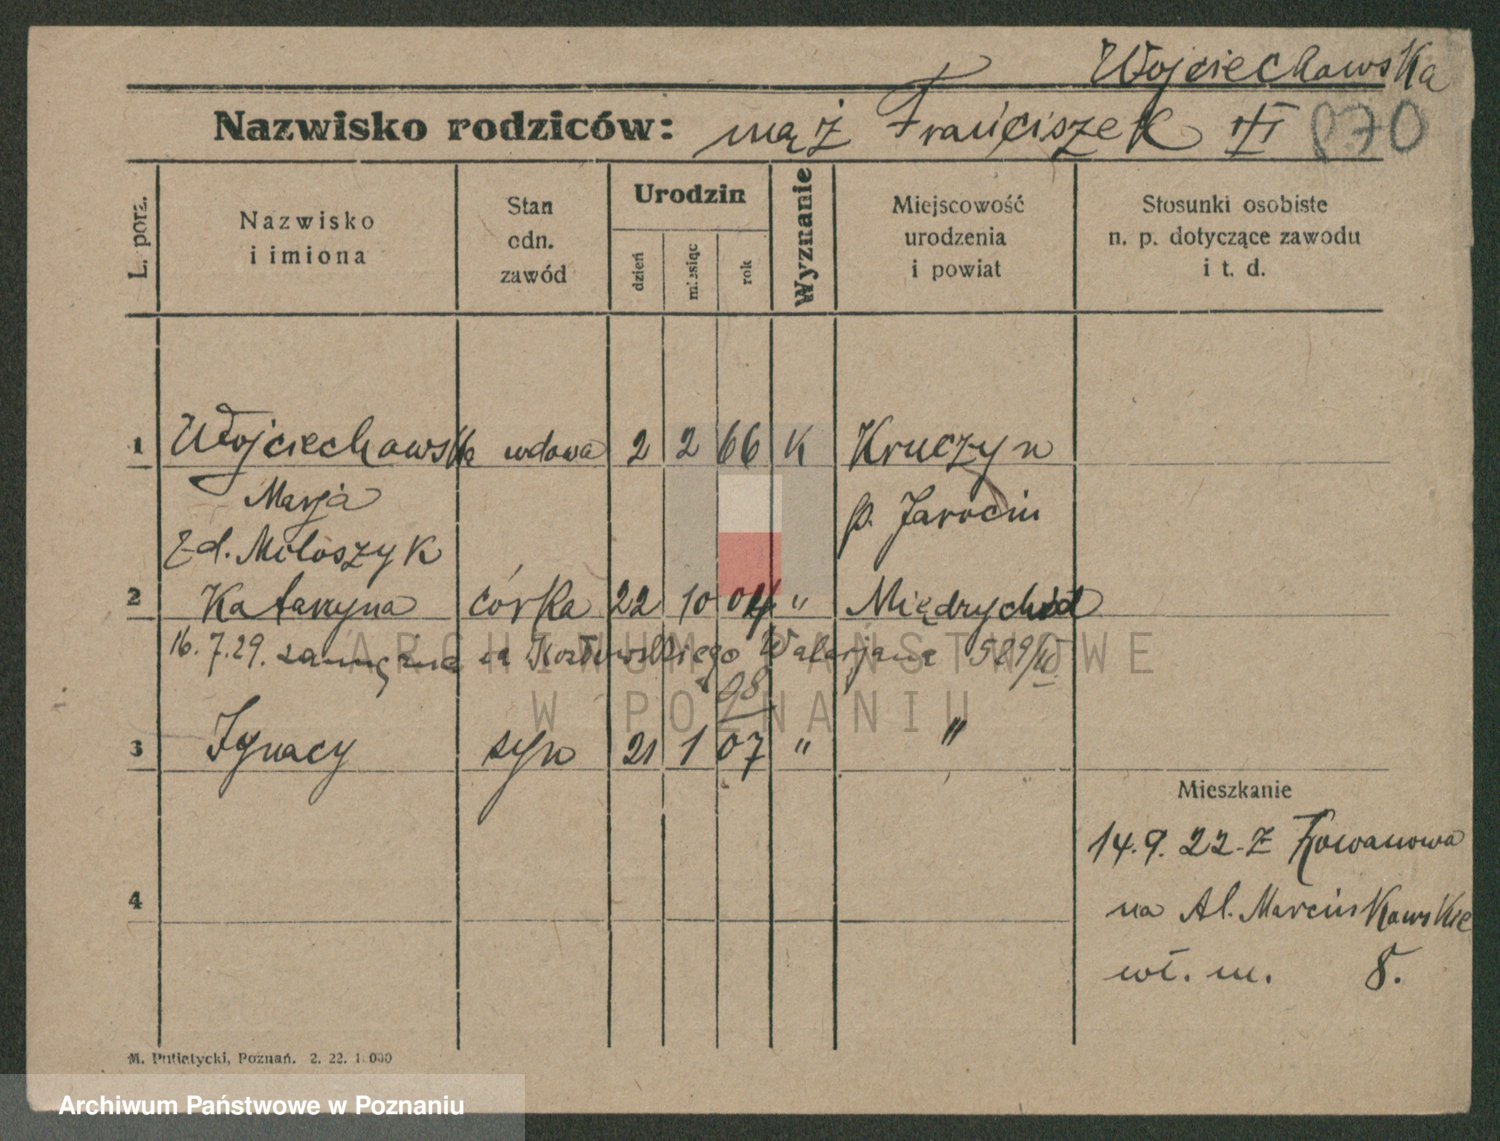 Wojciechowska
Nazwisko rodziców: mąż Franciszek III 870
L. porz.
Nazwisko
i imiona
Stan
cdn.
zawód
Urodzin
dzień
miesiąc
rok
Wyznanie
Miejscowość
urodzenia
i powiat
Stosunki osobiste
n. p. dotyczące zawodu
i t. d.
1 Wojciechowska wdowa 2 2 66 K Kruczyn
Marja p. Jarocin
zd. Miłoszyk
2 Katarzyna córka 22 10 04 " Międrychód
16.7.29. zamężna za Kozłowskiego Walerjana 529/III
08
3 Ignacy syn 21 1 07 " "
Mieszkanie
14.9.22 - z Kowanowa
4
na Al. Marcinkowskie
wł. m. 8.
M. Putiatycki, Poznań. 2. 22. 1.000
ARCHIWUM PAŃSTWOWE
W POZNANIU
Archiwum Państwowe w Poznaniu